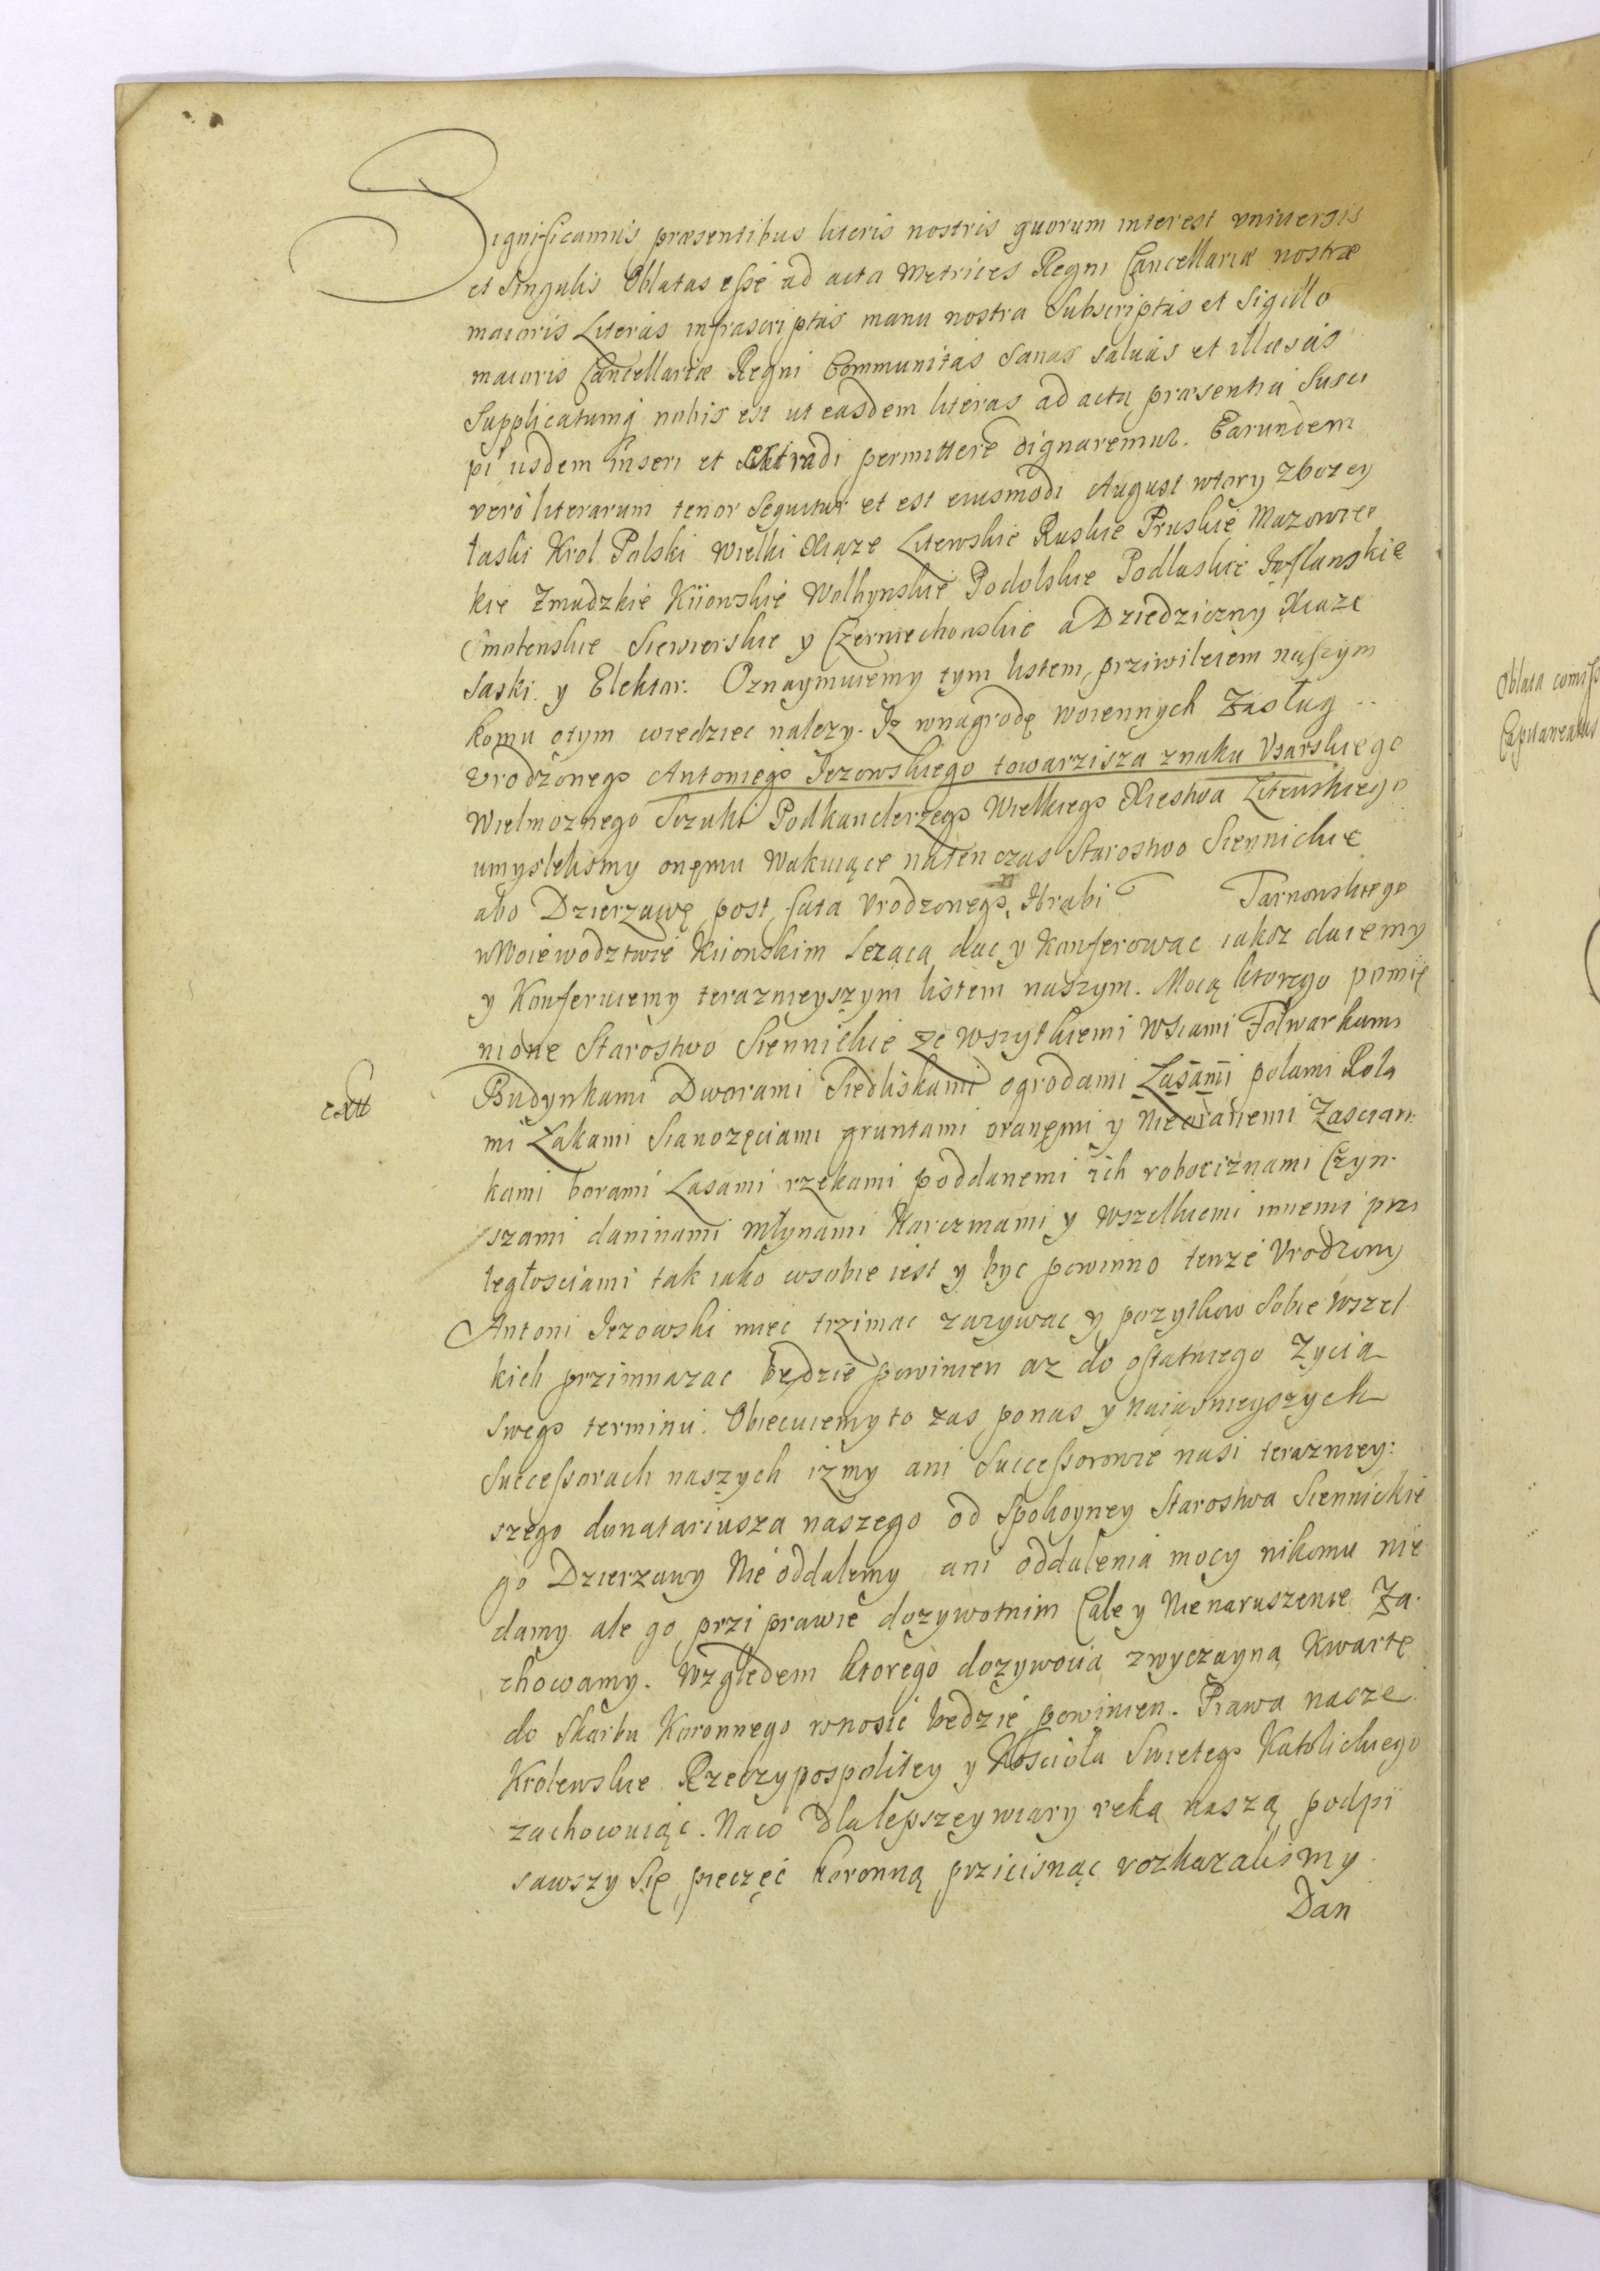 Significamus præsentibus literis nostris quorum interest vniuersis
et Singulis Oblatas esse ad acta Metrices Regni Cancellariæ nostræ
maioris Literas infrascriptas manu nostra Subscriptas et Sigillo
maioris Cancellariæ Regni Communitas Sanas saluas et illæsas
Supplicatumq nobis est ut easdem literas ad acta præsentia Susci
pi iisdem inseri et extradi permittere dignaremur. Earundem
vero literarum tenor Sequitur et est eiusmodi August wtory zbozey
łaski Krol Polski Wielki Xiąze Litewskie Ruskie Pruskie Mazowiec
kie Zmudzkie Kiiowskie Wolhynskie Podolskie Podlaskie Inflanskie
Smolenskie Siewierskie y Czerniechowskie a Dziedziczny Xiaze
Saski y Elektor. Oznaymuiemy tym listem prziwileiem naszym
komu otym wiedziec nalezy. Iz wnagrodę woiennych Zasług ..
Vrodzonego Antoniego Jezowskiego towarzisza znaku Vsarskiego
Wielmoznego Sczuki Podkanclerzego Wielkiego Xiestwa Litewskiego
umyslelismy onemu Wakuiące natenczas Starostwo Siennickie
abo Dzierzawę post fata Vrodzonego Hrabi Tarnowskiego
wWoiewodztwie Kiiowskim Lezącą dac y Konferowac iakoz daiemy
y Konferuiemy terazniejszym listem naszym. Mocą ktorego pomie
nione Starostwo Siennickie ze wszytkiemi Wsiami Folwarkami
Budynkami Dworami Siedliskami ogrodami Lasami polami Rola
mi Łakami Sianozęciami gruntami oranemi y Nieoranemi Zascian
kami borami Lasami rzekami poddanemi ich robociznami Czyn
szami daninami Młynami Karczmami y wszelkiemi innemi przi
ległosciami tak iako wsobie iest y byc powinno tenze Vrodzony
Antoni Jezowski miec trzimac zazywac y pozytkow Sobie wszel
kich przimnazac będzie powinien az do ostatniego Zycia
swego terminu. Obiecuiemy to zas ponas y naiasnieyszych
Successorach naszych izmy ani Successorowie nasi terazniey:
szego donatariusza naszego od Spokoyney Starostwa Siennickie
go Dzierzawy Nie oddalemy ani oddalenia mocy nikomu nie
damy ale go przi prawie dozywotnim Cale y Nienaruszenie Za
chowamy. Względem ktorego dozywocia zwyczayna Kwartę
do Skarbu Koronnego wnosic będzie powinien. Prawa nasze
Krolewskie Rzeczypospolitey y Koscioła Swietego Katolickiego
zachowuiąc. Naco Dla lepszey wiary ręką naszą podpi
sawszy Się pieczęć koronną przicisnąc rozkazalismy.
Dan
Oblata comiss
Capitaneatus